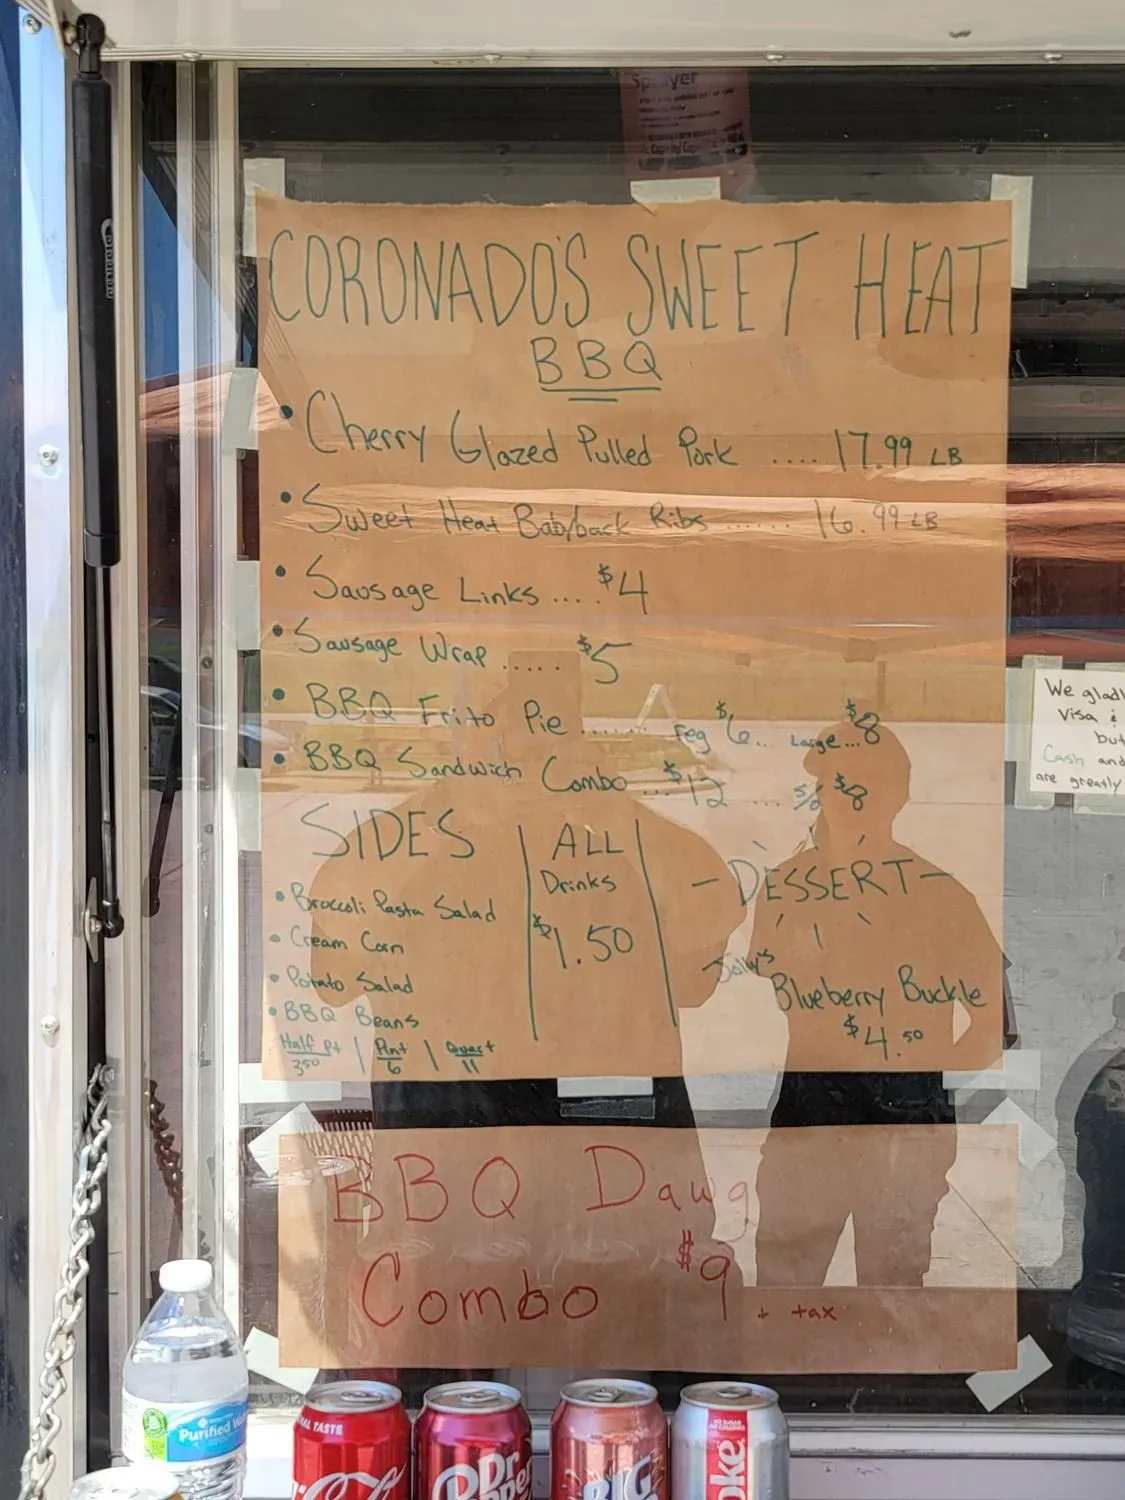 Sprayer
CORONADO'S SWEET HEAT
BBQ
• Cherry Glazed Pulled Pork .... 17.99 LB
• Sweet Heat Babyback Ribs ...... 16.99 LB
• Sausage Links .... $4
• Sausage Wrap ..... $5
• BBQ Frito Pie ...... reg $6... Large ... $8
• BBQ Sandwich Combo ... $12 ... s/o $8
SIDES
• Broccoli Pasta Salad
• Cream Corn
• Potato Salad
• BBQ Beans
Half pt | Pint | Quart
350 6 11
ALL
Drinks
$1.50
- DESSERT -
Blueberry Buckle
$4.50
We glad
Visa &
but
Cash and
are greatly
BBQ Dawg
Combo $9 + tax
Purified
TASTE
Dr
BIG
oke